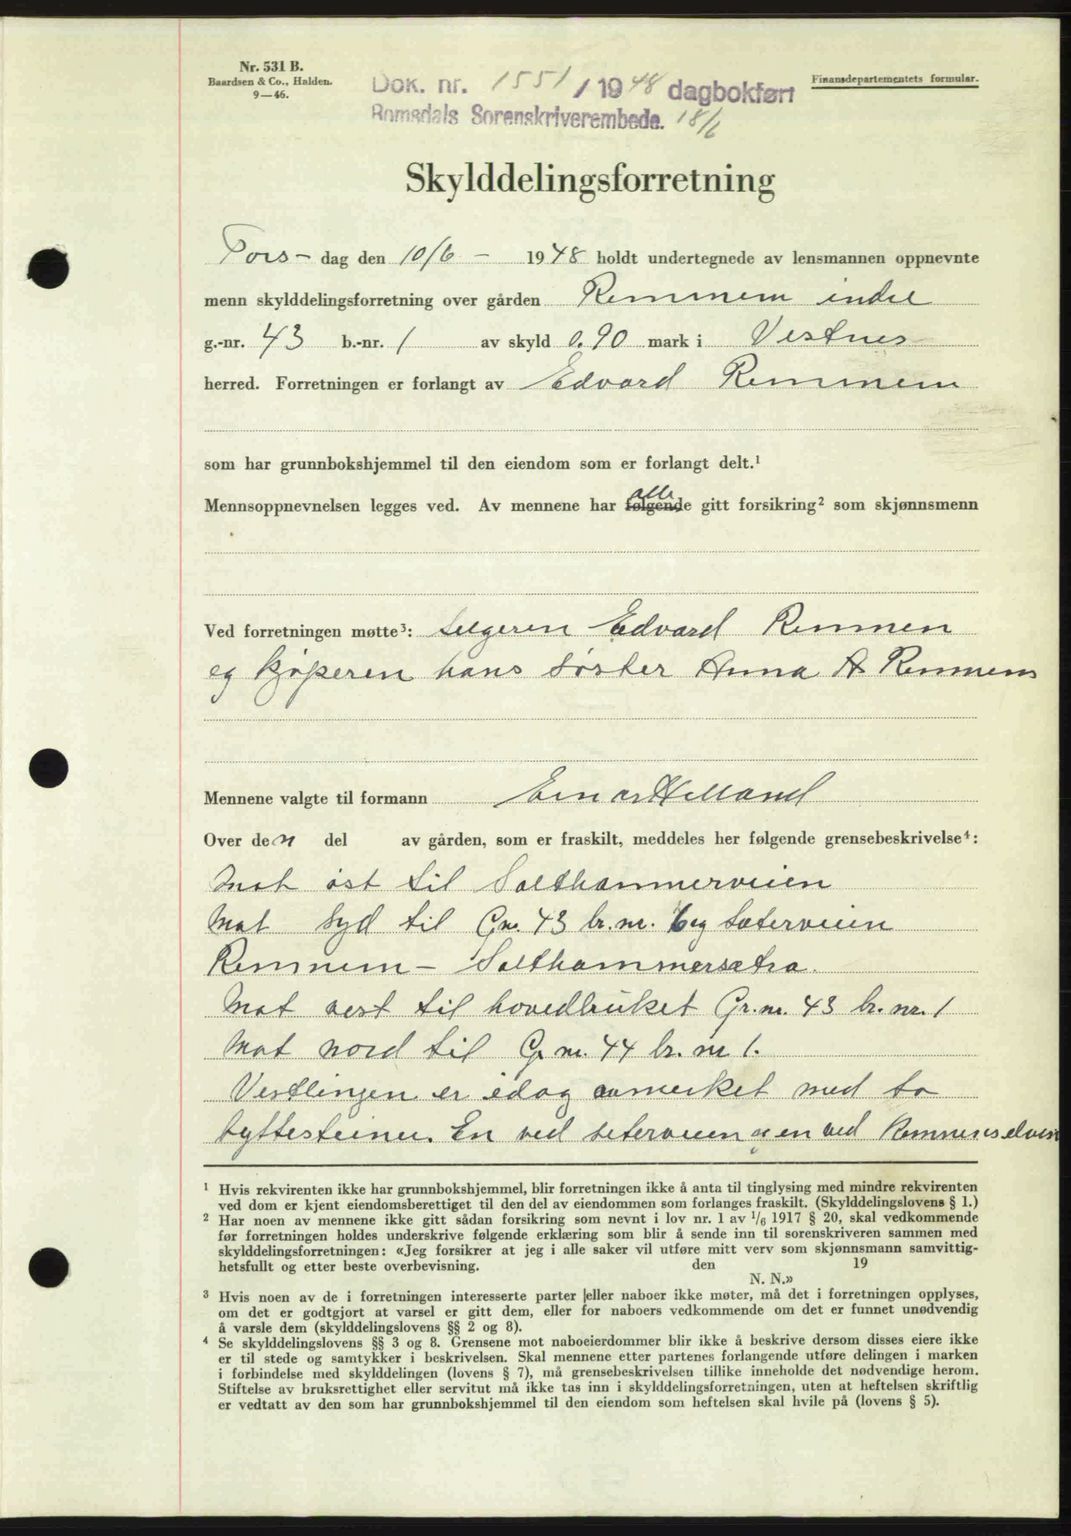 Nr. 531 B.
Baardsen & Co., Halden.
9—46.
Dok. nr. 1551 / 1948 dagbokført
Romsdals Sorenskriverembede. 18/6
Finansdepartementets formular.
Skylddelingsforretning
Tors- dag den 10/6 - 1948 holdt undertegnede av lensmannen oppnevnte
menn skylddelingsforretning over gården Remmem indre
g.-nr. 43 b.-nr. 1 av skyld 0.90 mark i Vestnes
herred. Forretningen er forlangt av Edvard Remmem
som har grunnbokshjemmel til den eiendom som er forlangt delt.¹
Mennsoppnevnelsen legges ved. Av mennene har følgende alle gitt forsikring² som skjønnsmenn
Ved forretningen møtte³: Selgeren Edvard Remmen
og kjøperen hans søster Anna A Remmem
Mennene valgte til formann Einar Helland
Over den del av gården, som er fraskilt, meddeles her følgende grensebeskrivelse⁴:
Mot øst til Salthammerveien
Mot syd til Gr. 43 br. nr. 6 og sæterveien
Remmem - Salthammersætra.
Mot vest til hovedbruket Gr. nr. 43 br. nr. 1
Mot nord til Gr nr. 44 br. nr 1.
Vestlingen er idag avmerket med to
byttesteiner. En ved seterveien og en ved Remmenselven
¹ Hvis rekvirenten ikke har grunnbokshjemmel, blir forretningen ikke å anta til tinglysing med mindre rekvirenten
ved dom er kjent eiendomsberettiget til den del av eiendommen som forlanges fraskilt. (Skylddelingslovens § 1.)
² Har noen av mennene ikke gitt sådan forsikring som nevnt i lov nr. 1 av 1/6 1917 § 20, skal vedkommende
før forretningen holdes underskrive følgende erklæring som blir å sende inn til sorenskriveren sammen med
skylddelingsforretningen: «Jeg forsikrer at jeg i alle saker vil utføre mitt verv som skjønnsmann samvittig-
hetsfullt og etter beste overbevisning. den 19
N. N.»
³ Hvis noen av de i forretningen interesserte parter eller naboer ikke møter, må det i forretningen opplyses,
om det er godtgjort at varsel er gitt dem, eller for naboers vedkommende om det er funnet unødvendig
å varsle dem (skylddelingslovens §§ 2 og 8).
⁴ Se skylddelingslovens §§ 3 og 8. Grensene mot naboeierdommer blir ikke å beskrive dersom disses eiere ikke
er til stede og samtykker i beskrivelsen. Skal mennene etter partenes forlangende utføre delingen i marken
i forbindelse med skylddelingen (lovens § 7), må grensebeskrivelsen tillike inneholde det nødvendige herom.
Stiftelse av bruksrettighet eller servitut må ikke tas inn i skylddelingsforretningen, uten at heftelsen skriftlig
er vedtatt av den som har grunnbokshjemmel til den eiendom som heftelsen skal hvile på (lovens § 5).